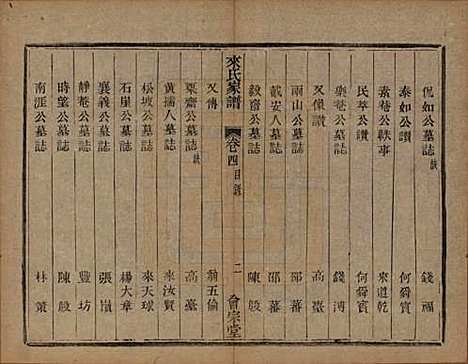 侃如公墓誌 錢福
泰如公讚 何舜賓
素菴公軼事 來道乾
民萃公讚 何舜賓
樂菴公墓誌 錢溥
又像讚 高臺
雨山公墓誌 邵蕃
戴安人墓誌 邵蕃
毅齋公墓誌 陳殷
來氏家譜 卷四目錄 二 會宗堂
又傳 翁五倫
東齋公墓誌 高臺
黃孺人墓誌 來汝賢
松坡公墓誌 來天球
石崖公墓誌 楊大章
襄義公墓誌 張嵿
靜菴公墓誌 豐坊
時望公墓誌 陳殷
南涯公墓誌 林策